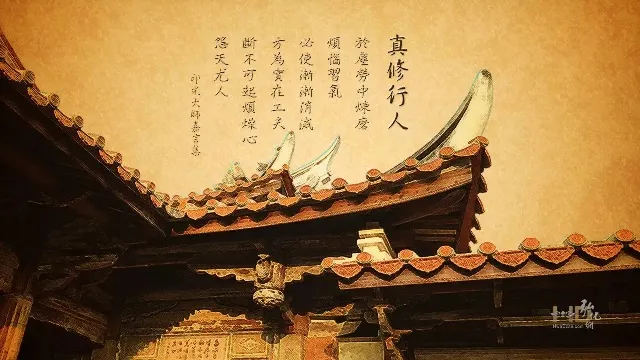 真修行人
於塵勞中煉磨
煩惱習氣
必使漸漸消滅
方為實在工夫
斷不可起煩燥心
怨天尤人
印光大師嘉言集